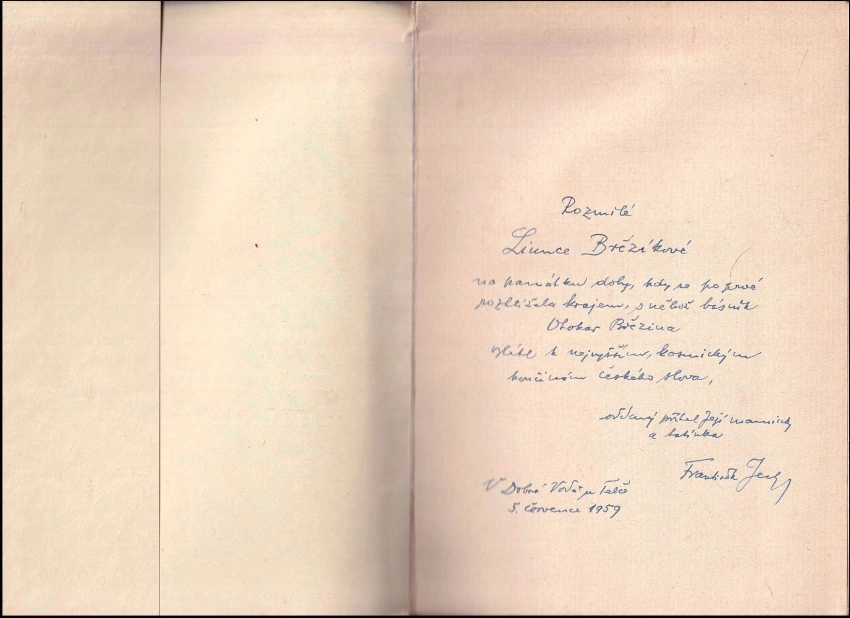 Rozmilé
Liunce Březíkové
na památku doby, kdy se poprvé
rozhlížela krajem, s něhož básník
Otokar Březina
vzlétl k nejvyšším, kosmickým
končinám českého slova,
oddaný přítel Její maminky
a tatínka
František
V Dobré Vodě u Telče
5. července 1959